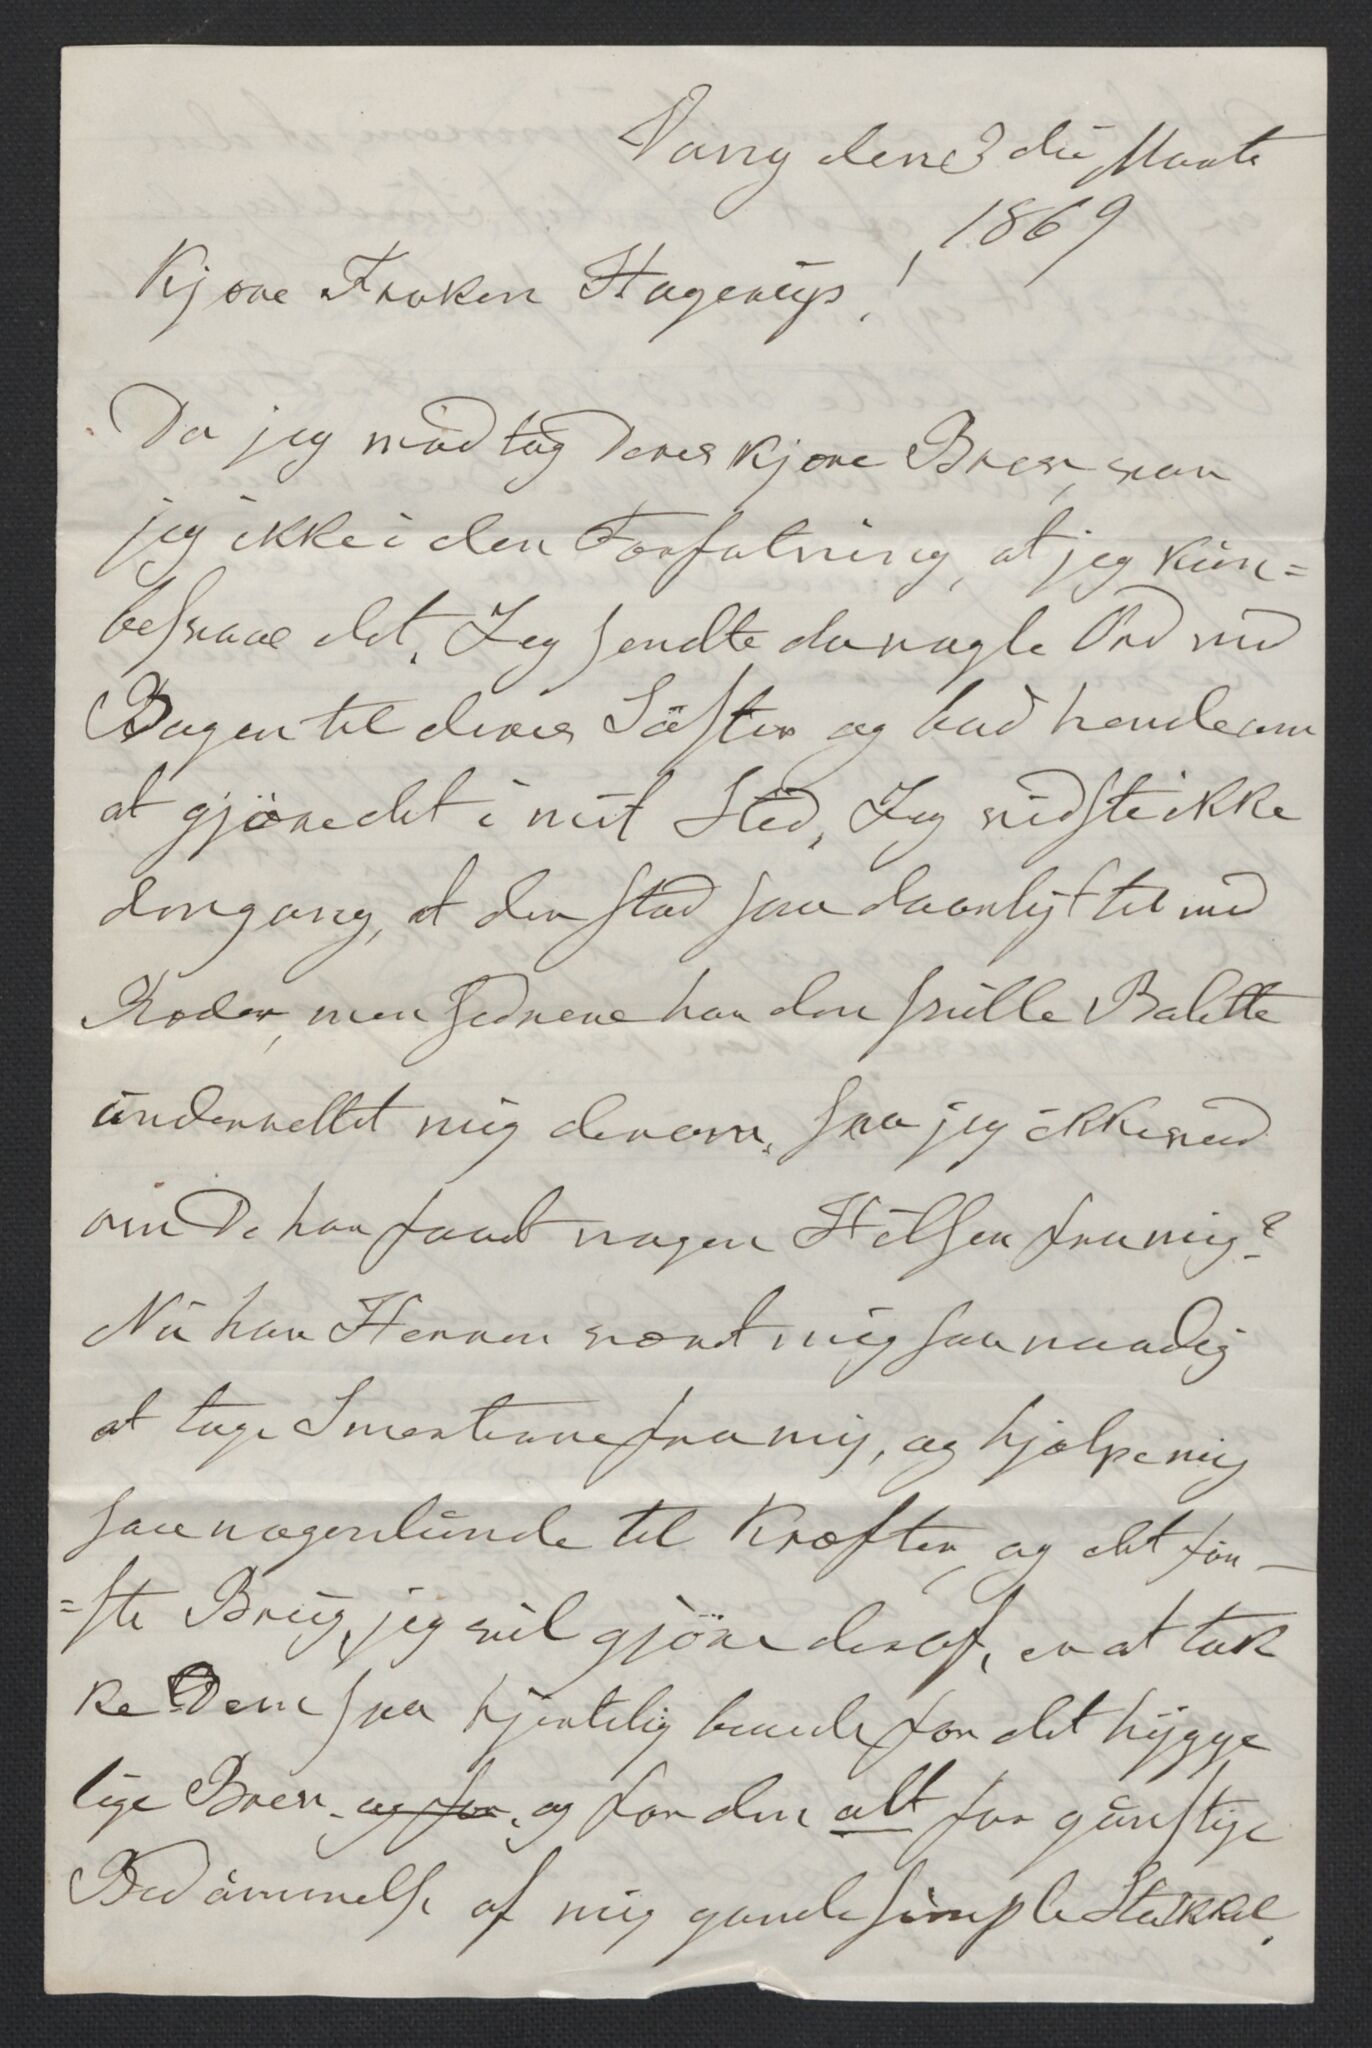 Vang den 3die Marts
1869
Kjære Frøken Hagerup!
Da jeg modtog Deres kjære Brev, var
jeg ikke i den Forfatning, at jeg kun=
besvare det. Jeg sendte da nogle Ord ved
Bagen til deres Söster og bad hende om
at gjöre det i mit Sted. Jeg vidste ikke
dengang, at den stod saa daarligt til med
Moder, men sednere har den snille Balette
underrettet mig derom, saa jeg ikke ved
om De har faaet nogen Hilsen fra mig?
Nu har Herren været mig saa naadig
at tage Smerterne fra mig, og hjælpe mig
saa nogenlunde til Kræfter, og det för-
=ste Brug, jeg vil gjöre deraf, er at tak
ke Dem saa hjertelig baade for det hygge
lige Brev og for og for den alt for gunstige
Bedömmelse af mig gamle simple Stakkel.